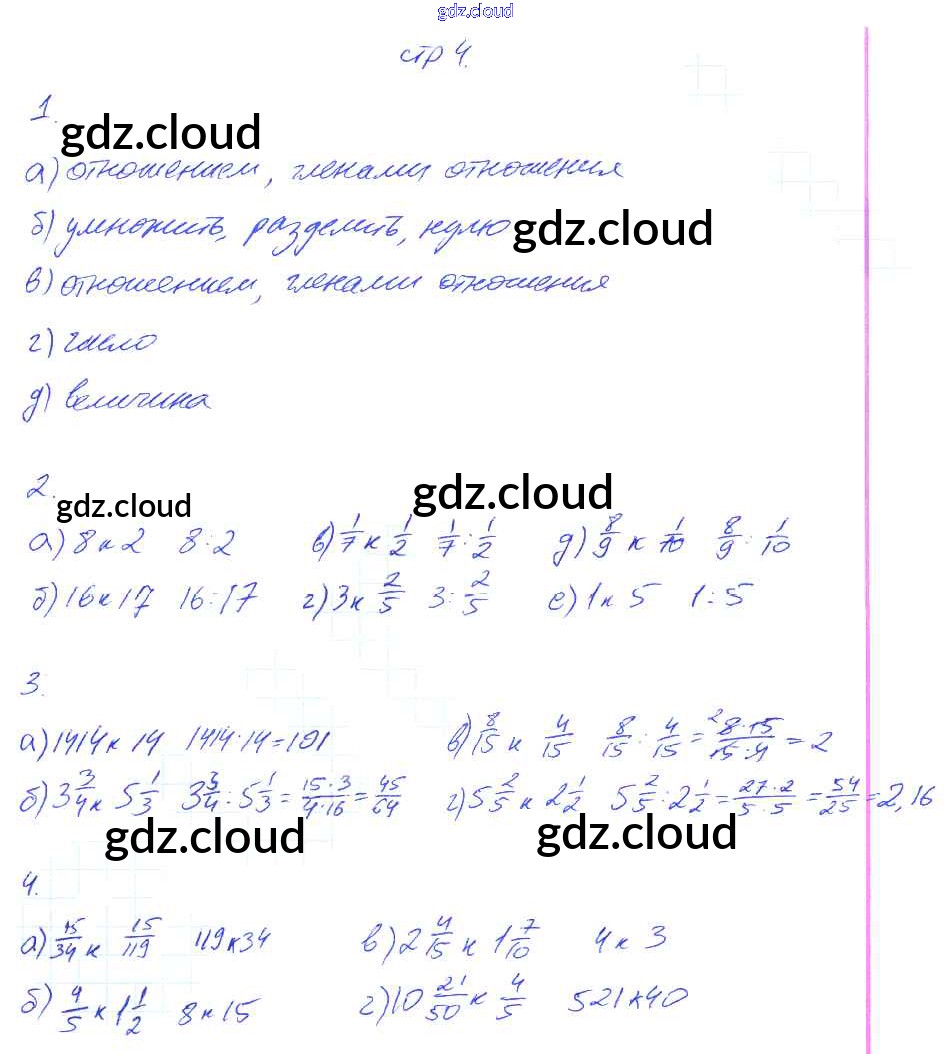 gdz.cloud
стр 4.
1.
gdz.cloud
а) отношением, членами отношения
б) умножить, разделить, нулю
gdz.cloud
в) отношением, членами отношения
г) число
д) величина
2.
gdz.cloud
gdz.cloud
а) 8 к 2 8:2 в) 1/7 к 1/2 1/7 : 1/2 д) 8/9 к 1/10 8/9 : 1/10
б) 16 к 17 16:17 г) 3 к 2/5 3 : 2/5 е) 1 к 5 1:5
3.
а) 1414 к 14 1414:14=101 в) 8/15 к 4/15 8/15 : 4/15 = 8·15/15·4 = 2
б) 3 3/4 к 5 1/3 3 3/4 : 5 1/3 = 15·3/4·16 = 45/64 г) 5 2/5 к 2 1/2 5 2/5 : 2 1/2 = 27·2/5·5 = 54/25 = 2,16
gdz.cloud
gdz.cloud
4.
а) 15/34 к 15/119 119 к 34 в) 2 4/15 к 1 7/10 4 к 3
б) 4/5 к 1 1/2 8 к 15 г) 10 21/50 к 4/5 521 к 40